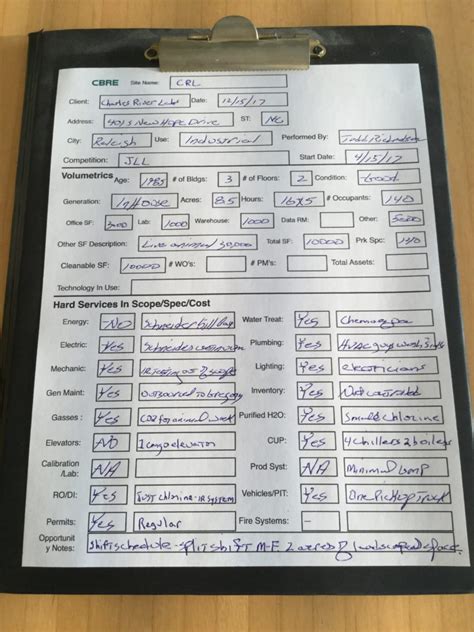 CBRE Site Name: CRL
Client: Charles River Labs Date: 12/15/17
Address: 4015 New Hope Drive ST: NC
City: Raleigh Use: Industrial Performed By: Todd Richardson
Competition: JLL Start Date: 4/15/17
Volumetrics Age: 1985 # of Bldgs: 3 # of Floors: 2 Condition: Good
Generation: InHouse Acres: 85 Hours: 16x5 # Occupants: 140
Office SF: Lab: 1000 Warehouse: 1000 Data RM: Other:
Other SF Description: Live Total SF: 10000 Prk Spc:
Cleanable SF: 10000 # WO's: # PM's: Total Assets:
Technology In Use:
Hard Services In Scope/Spec/Cost
Energy: No Schneider Water Treat: Yes
Electric: Yes Schneider Plumbing: Yes
Mechanic: Yes IR testing Lighting: Yes electricians
Gen Maint: Yes Outsourced to Gregory Inventory: Yes
Gasses : Yes CO2 for animal work Purified H2O: Yes Small chlorine
Elevators: NO 1 cargo elevator CUP: Yes 4 chillers 2 boilers
Calibration /Lab: NA Prod Syst: NA Minimal
RO/DI: Yes Just chlorine-IR system Vehicles/PIT: Yes One Pickup Truck
Permits: Yes Regular Fire Systems: –
Opportunit
y Notes: Shift schedule - split shift M-F 2 acres of landscaped space